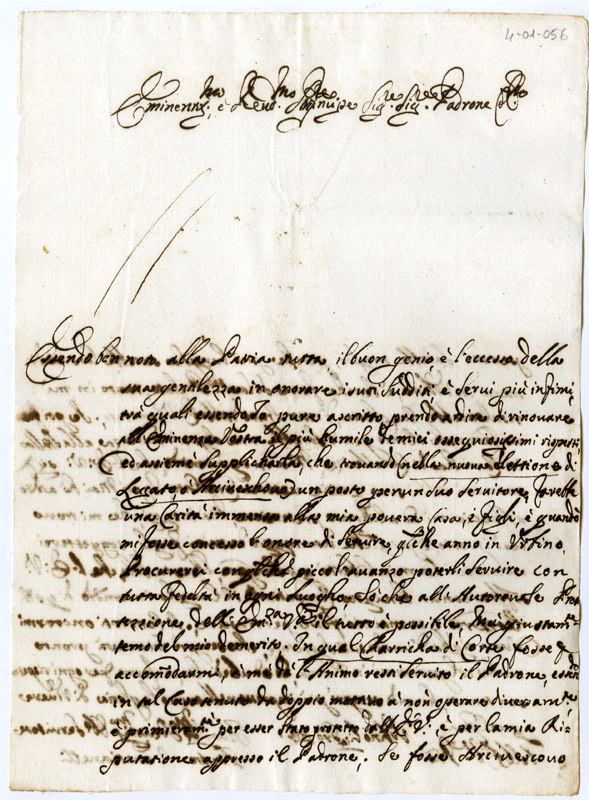 4-01-056
Eminentmo, e Revmo Principe Sigre Sigre e Padrone
Essendo ben nota alla Patria tutta il buon genio, e l'eccesso della
sua gentilezza in onorare i suoi sudditi, e servi più infimi,
trà quali essendo Io pure ascritto, prendo ardire di rinovare
all'Eminenza Vostra il più humile de miei ossequiosissimi rispetti,
ed assieme supplicharla, che trovando (nella nuova Elettione di
Leggato, ò Arcivexhovo) un posto per un suo servitore, farebbe
una Carità immensa alla mia povera Casa, e figli, e quando
mi fosse concesso l'onore di servire, qlche anno in Urbino,
Procurerei con qlche piccol'avanzo poterli servire con
tutta fedeltà in ogni luogho, so che all'Autorevole Pro-
tezzione dell'Emza Va il tutto è possibile, mà giustamte
temo del mio demerito. In qual Charicha di Corte fosse p
accommodarmi, pè me dà l'Animo ressi servito il Padrone, essendo
in tal Caso tenuto da doppio motivo à non operare diversamte
e primieramte per esser stato protetto dall'E. V. e per la mia Ri-
putatione appresso il Padrone; Se fosse Arcivescovo